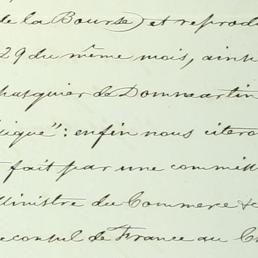 de la Bourse) et reprodu
29 du même mois, ains
hasquier de Dommartin
ique": enfin nous citero
fait par une commiss
Ministre du Commerce &c
consul de France au C